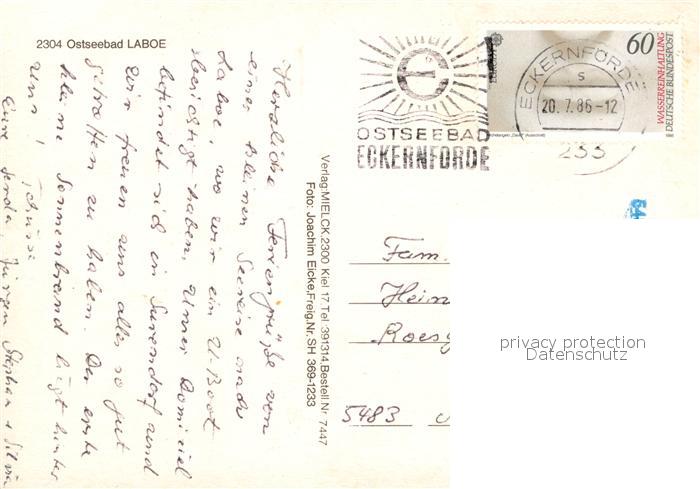 2304 Ostseebad LABOE
Herzliche Feriengrüße von
einer kleinen Seereise nach
Laboe, wo wir ein U-Boot
besichtigt haben. Unser Domiziel
befindet sich in Surendorf und
wir freuen uns alles so gut
getroffen zu haben. Der erste
kleine Sonnenbrand liegt hinter
uns!
Tschüssi
Eure Gerda, Jürgen Stephan + Silvia
Verlag:MIELCK 2300 Kiel 17.Tel. 391314,Bestell.Nr 7447
Foto: Joachim Eicke,Freig.Nr.SH 369-1233
OSTSEEBAD
ECKERNFÖRDE
60
WASSERREINHALTUNG
DEUTSCHE BUNDESPOST
ECKERNFÖRDE
s
20.7.86-12
233
Fam.
Hein
Roesg
5483
privacy protection
Datenschutz